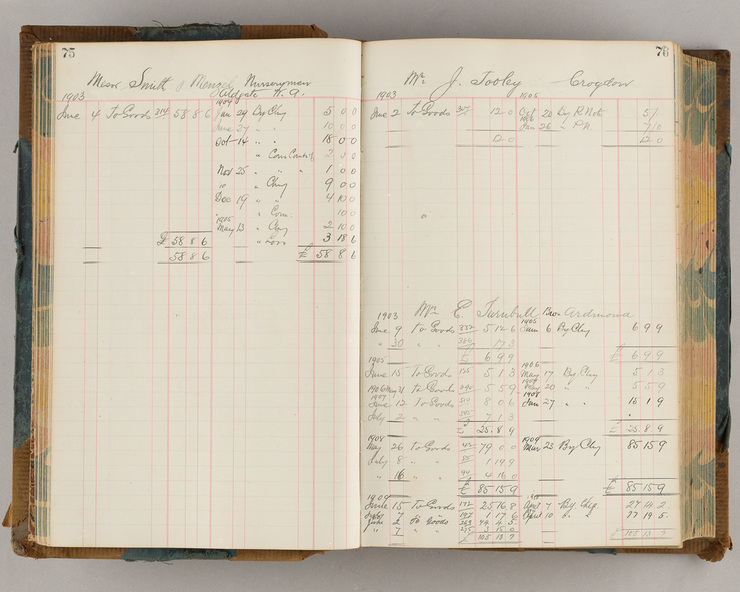 75
Messrs Smith & Nurserymen
Aldgate
1903
1904
June 4 To Goods 314 58 8 6 Jan 29 By Chq 5 0 0
June 27 " " 10 0 0
Oct 14 " " 18 0 0
" Com 2 0 0
Nov 25 " " 1 0 0
10 " Chq 9 0 0
Dec 19 " " 4 10 0
" Com 10 0
1905
May 13 " Chq 2 10 0
" Loss 3 18 6
£ 58 8 6
58 8 6 £ 58 8 6
76
Mr J. Tooley Croydon
1903 1905
June 2 To Goods 12 0 Oct 20 By P. Note 5/
1906
Jan 26 " P.N. 7/0
12 0 12 0
1903 Mr E. Turnbull Ardmona
1905
June 9 To Goods 5 12 6 June 6 By Chq 6 9 9
" 30 " " 17 3
£ 6 9 9 £ 6 9 9
1905 1906
June 15 To Goods 5 1 3 May 17 By Chq 5 1 3
1906 May 21 To Goods 5 5 9 20 " " 5 5 9
1907 1908
June 12 To Goods 8 0 6 Jan 27 " " 15 1 9
July 2 " " 7 1 3
£ 25 8 9 £ 25 8 9
1908 1909
May 26 To Goods 79 0 0 Mar 23 By Chq 85 15 9
July 8 " " 1 19 9
" 16 " " 4 16 0
£ 85 15 9 £ 85 15 9
1909
June 15 To Goods 25 16 8 April 7 By Chq 27 14 2
7 " " 1 17 6 April 10 " " 77 19 5
June 2 To Goods 263 74 4 5
" 7 " " 3 15 0
£ 105 13 7 £ 105 13 7